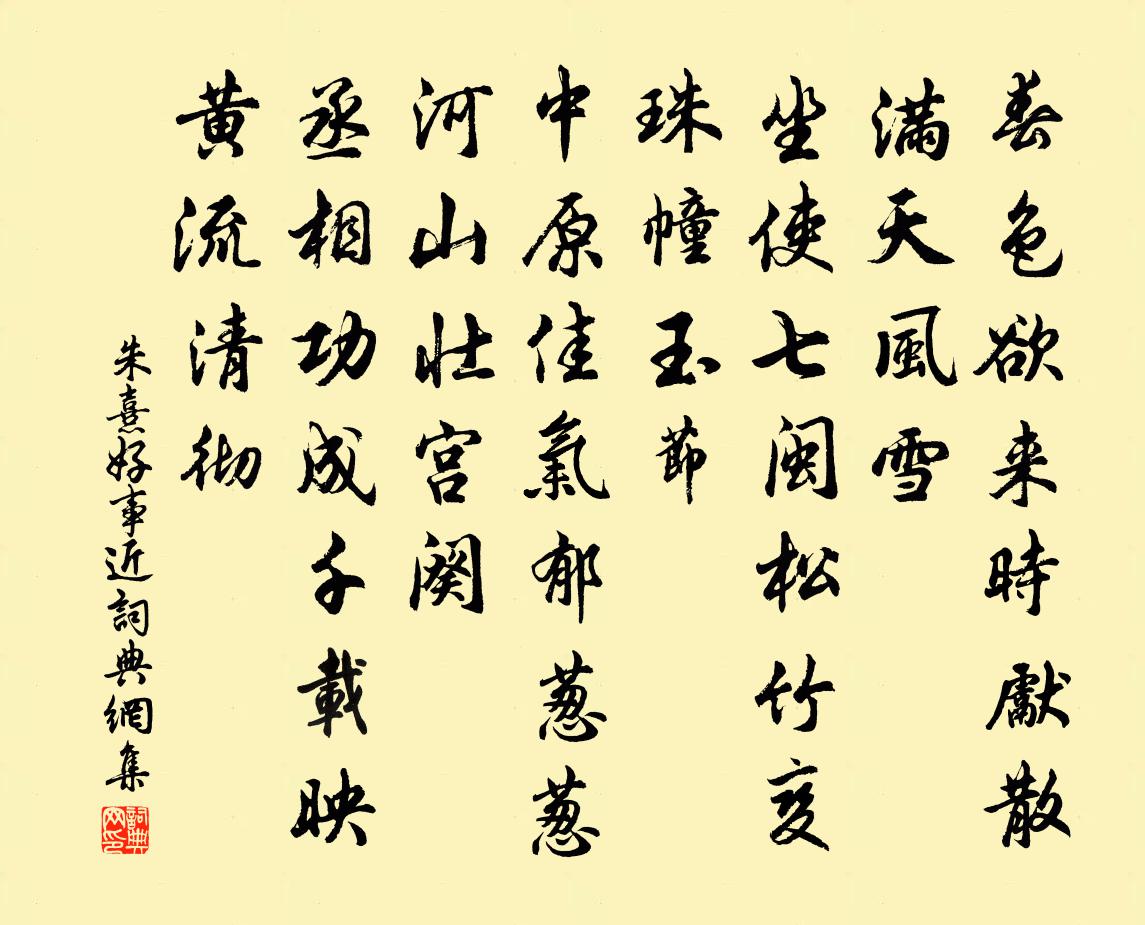 春色欲来時獻散
滿天風雪
坐使七閩松竹变
珠幢玉節
中原佳氣郁葱葱
河山壮宫阙
丞相功成千載映
黄流清彻
朱熹好事近詞典網集
詞典网印